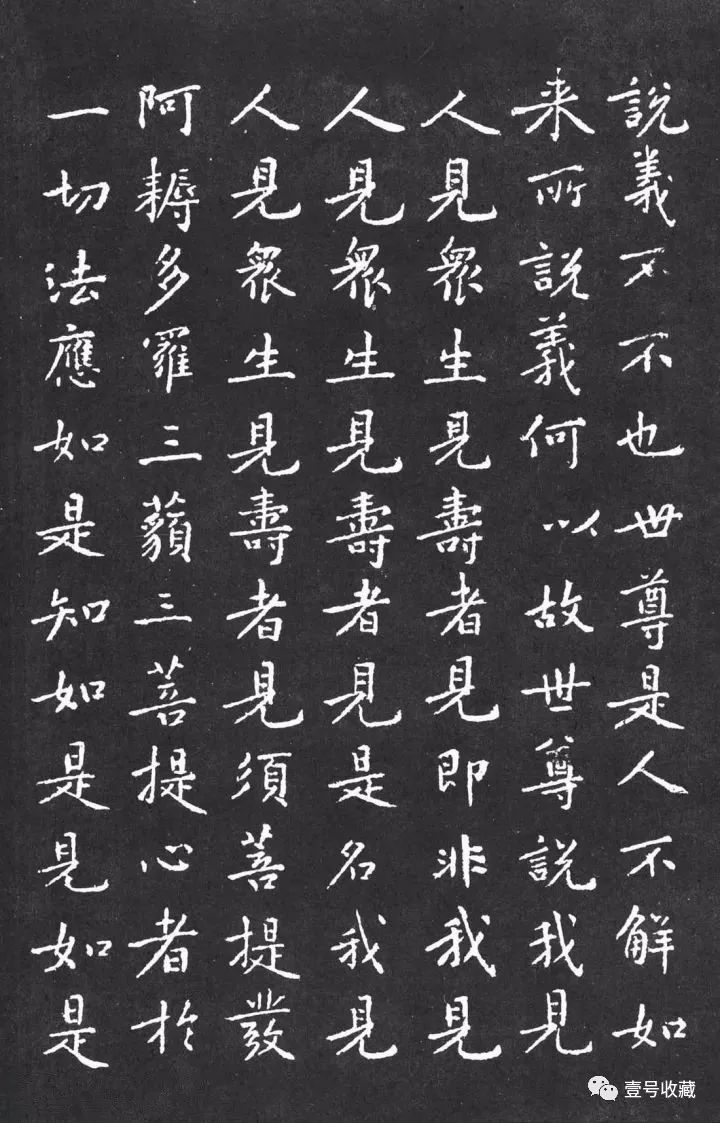 說義不不也世尊是人不解如
来所說義何以故世尊說我見
人見衆生見壽者見即非我見
人見衆生見壽者見是名我見
人見衆生見壽者見須菩提發
阿耨多羅三藐三菩提心者於
一切法應如是知如是見如是
壹号收藏